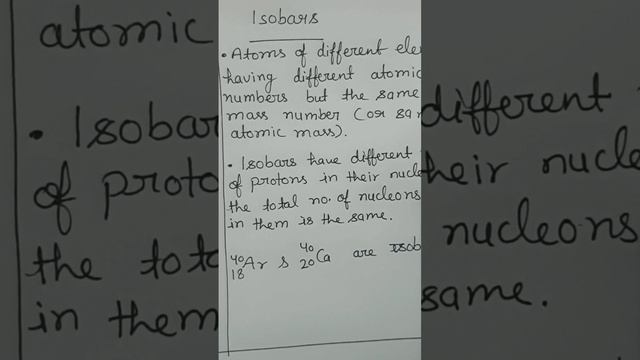 Isobars
• Atoms of different ele
having different atomic
numbers but the same
mass number (or sa
atomic mass).
• Isobars have different
of protons in their nucl
the total no. of nucleons
in them is the same.
40 18 Ar & 40 20 Ca are isob
atomic
• Isobar
of proto
the tota
in them
different
heir nucle
nucleons
same.